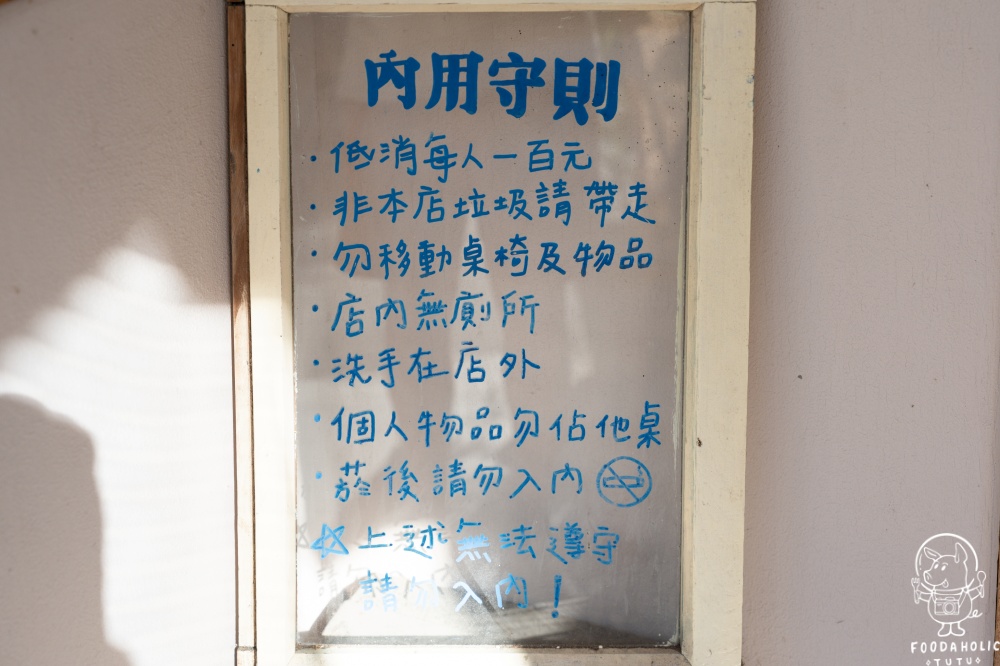 內用守則
·低消每人一百元
·非本店垃圾請帶走
·勿移動桌椅及物品
·店內無廁所
·洗手在店外
·個人物品勿佔他桌
·菸後請勿入內
☆上述無法遵守
請勿入內!
FOODAHOLIC
TUTU